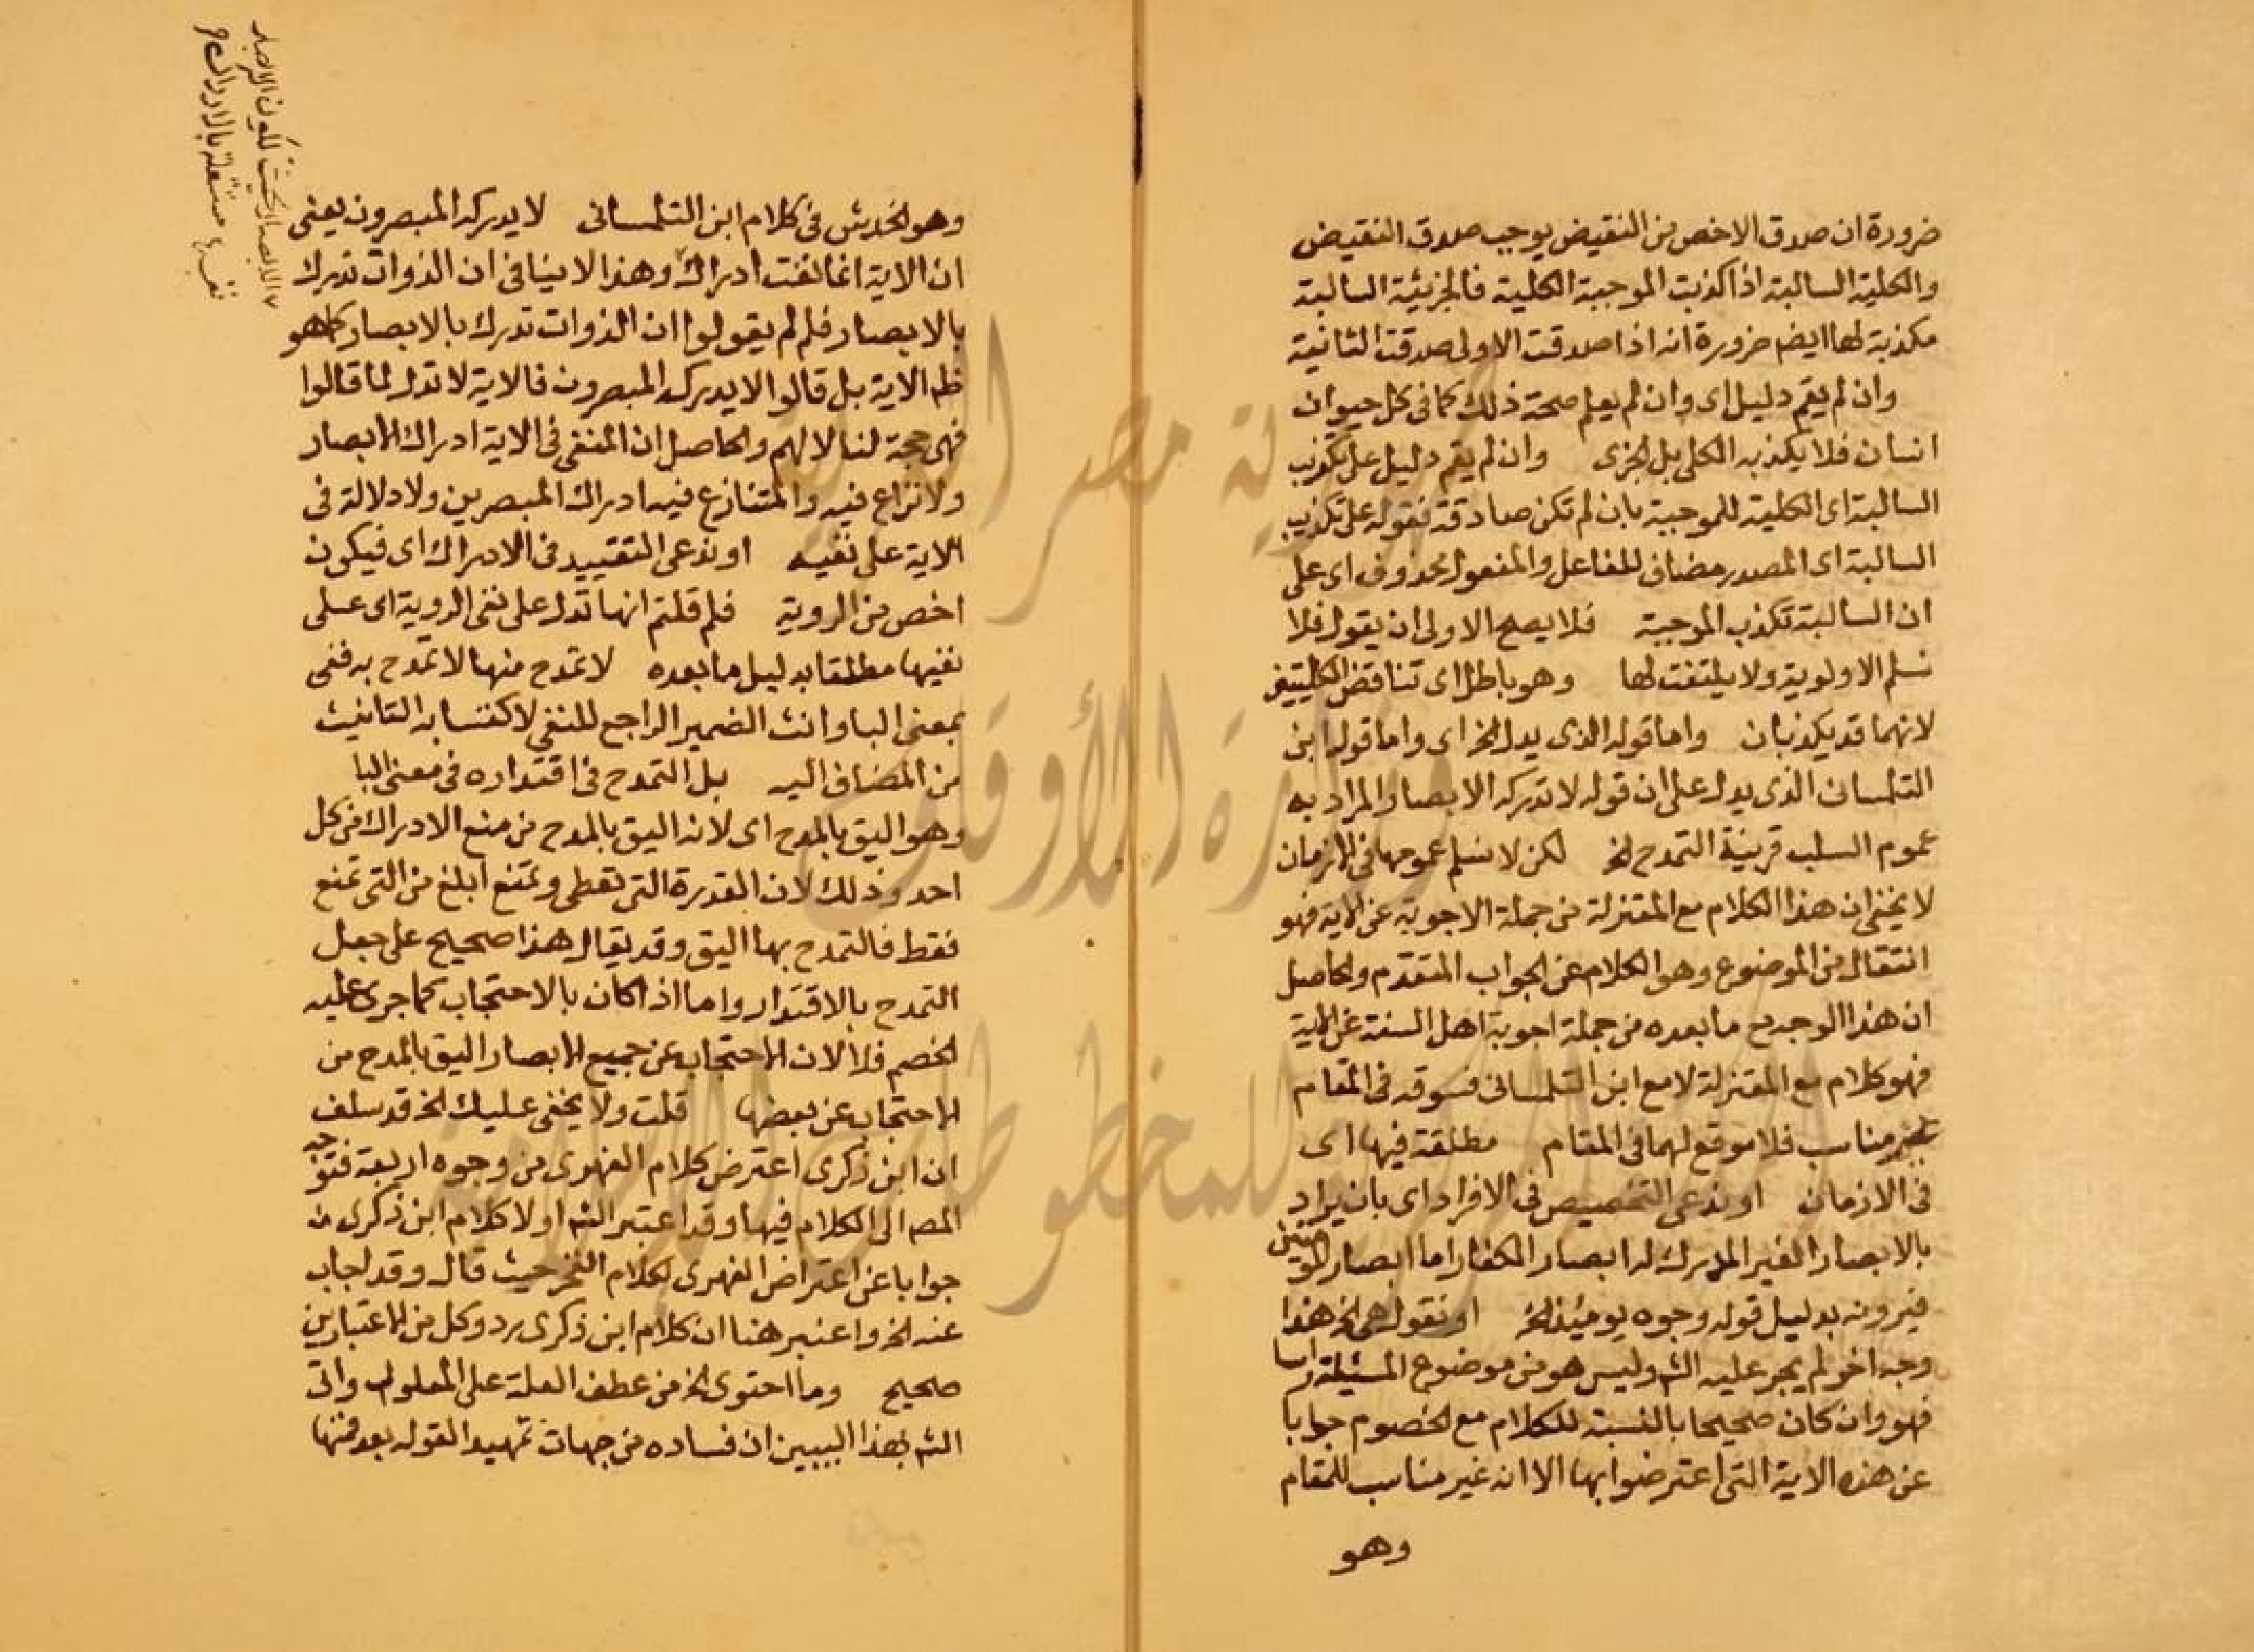 ضرورة ان صدق الاخص من النقيض يوجب صدق النقيض
والكلية السالبة اذا كذبت الموجبة الكلية فالجزئية السالبة
مكذبة لها ايضم ضرورة انه اذا صدقت الاولى صدقت الثانية
وان لم يقم دليل اى وان لم يعلم صحة ذلك كما فى كل حيوان
انسان فلا يكذبه الكلى بل الجزى وان لم يقم دليل على تكذيب
السالبة اى الكلية للموجبة بان لم تكن صادقة فقوله على تكذيب
السالبة اى المصدر مضاف للفاعل والمفعول محذوف اى على
ان السالبة تكذب الموجبة فلا يصح الاولى ان يقول فلا
نسلم الاولوية ولا يلتفت لها وهو باطل اى تناقض الكليتين
لانهما قد يكذبان واما قوله الذى يدل الخ اى واما قول ابن
التلمسانى الذى يدل على ان قوله لا تدركه الابصار المراد به
عموم السلب قرينة التمدح الخ لكن لا نسلم عمومها فى الازمان
لا يخفى ان هذا الكلام مع المعتزلة من جملة الاجوبة عن الاية فهو
انتقال من الموضوع وهو الكلام عن الجواب المتقدم والحاصل
ان هذا الوجه مع ما بعده من جملة اجوبة اهل السنة عن الاية
فهو كلام مع المعتزلة لا مع ابن التلمسانى فسوقه فى المقام
غير مناسب فلا موقع لهما فى المقام مطلقة فيها اى
فى الازمان او ندعى التخصيص فى الافراد اى بان يراد
بالابصار الغير المدرك له ابصار الكفار اما ابصار المؤمنين
فيرونه بدليل قوله وجوه يومئذ الخ او نقول هى الخ هذا
وجه اخر لم يجر عليه الشم وليس هو من موضوع المسئلة راسا
فهو وان كان صحيحا بالنسبة للكلام مع الخصوم جوابا
عن هذه الاية التى اعترضوا بها الا انه غير مناسب للمقام
وهو
وهو الخدش فى كلام ابن التلمسانى لا يدركه المبصرون يعنى
ان الاية انما نفت ادراك وهذا لا ينافى ان الذوات تدرك
بالابصار فلم لم يقولوا ان الذوات تدرك بالابصار كما هو
ظم الاية بل قالوا لا يدركه المبصرون فالاية لا تدل لما قالوا
فهى حجة لنا لا لهم والحاصل ان المنفى فى الاية ادراك الابصار
ولا نزاع فيه والمتنازع فيه ادراك المبصرين ولا دلالة فى
الاية على نفيه او ندعى التقييد فى الادراك اى فيكون
اخص من الروية فلم قلتم انها تدل على نفى الروية اى على
نفيها مطلقا بدليل ما بعده لا تمدح منها لا تمدح به ففى
بمعنى البا وانث الضمير الراجع للنفى لاكتسابه التانيث
من المضاف اليه بل التمدح فى اقتداره فى معنى البا
وهو اليق بالمدح اى لانه اليق بالمدح من منع الادراك من كل
احد وذلك لان القدرة التى تعطى وتمنع ابلغ من التى تمنع
فقط فالتمدح بها اليق وقد يقال هذا صحيح على جعل
التمدح بالاقتدار واما اذا كان بالاحتجاب كما جرى عليه
الخصم فلا لان الاحتجاب عن جميع الابصار اليق بالمدح من
الاحتجاب عن بعضها قلت ولا يخفى عليك الخ قد سلف
ان ابن ذكرى اعترض كلام الفهرى من وجوه اربعة فتوجه
المصم الى الكلام فيها وقد اعتبر الشم اولا كلام ابن ذكرى
جوابا عن اعتراض الفهرى لكلام الفخر حيث قال وقد اجاب
عنه الخ واعتبر هنا ان كلام ابن ذكرى رد وكل من الاعتبارين
صحيح وما احتوى الخ من عطف العلة على المعلول واتى
الشم بهذا ليبين ان فساده من جهات تمهيدا لقوله بعد فمنها
الابصار
نفسها متعلقة بالادراك